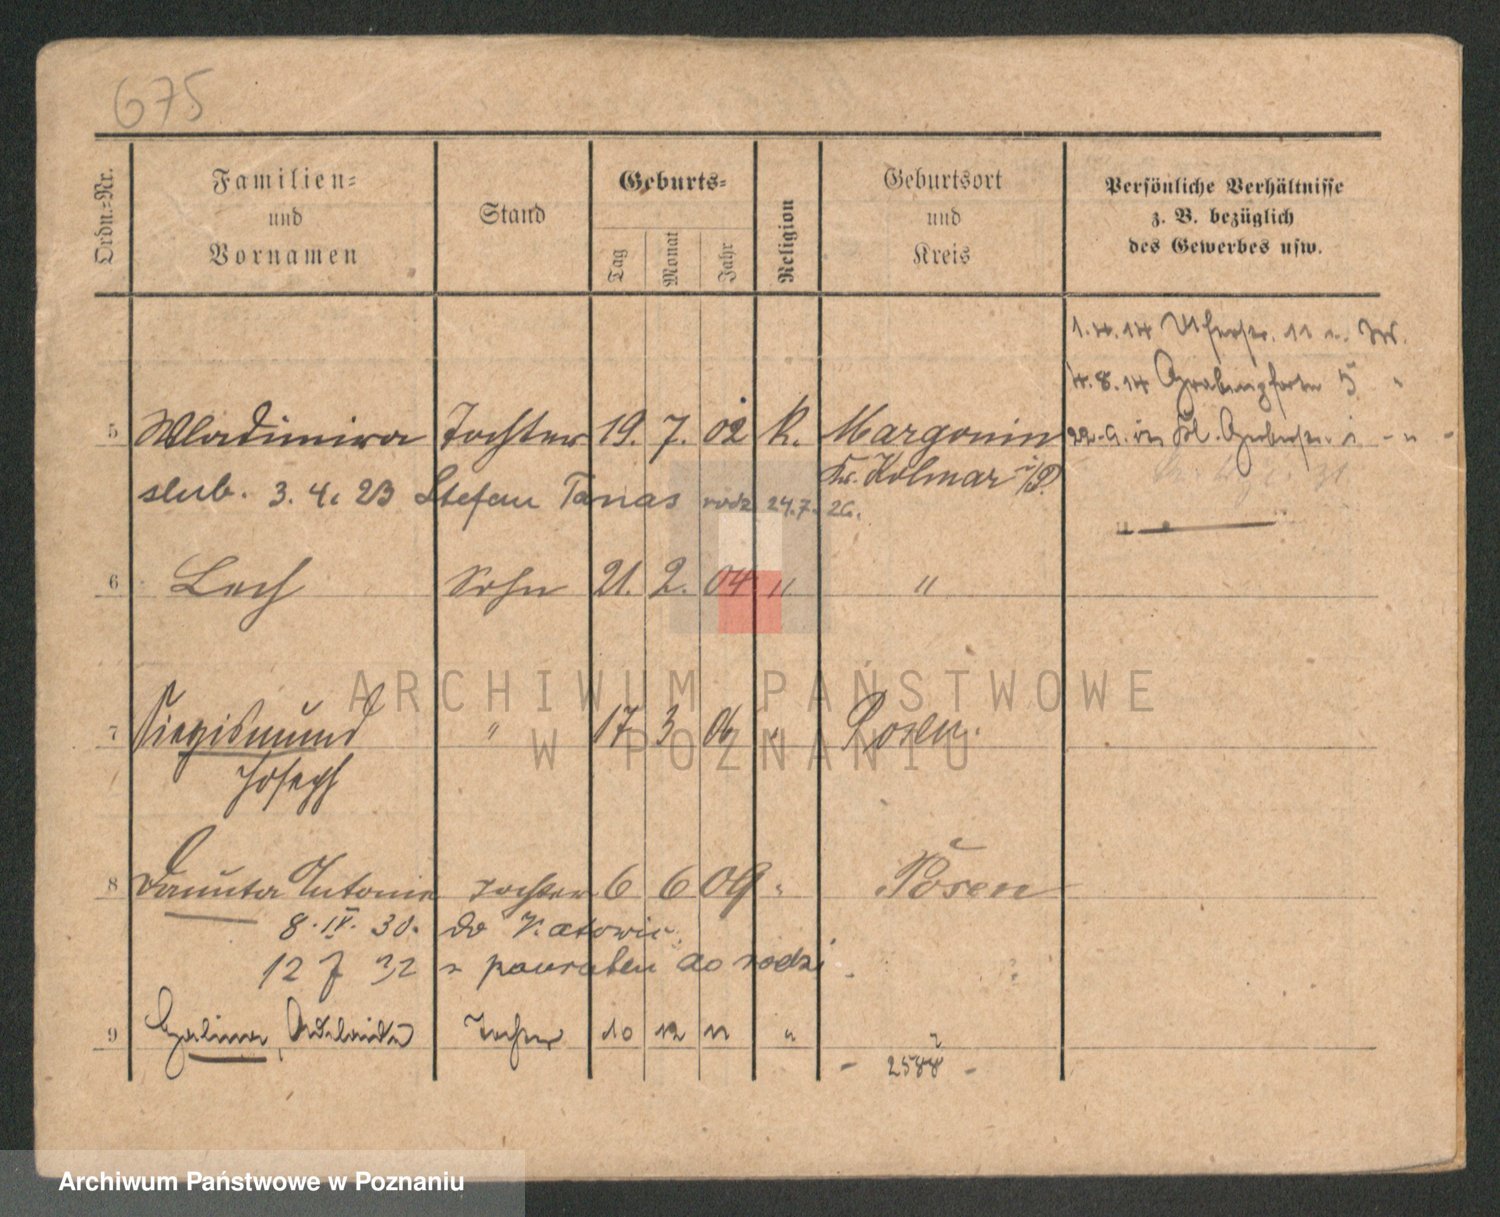 675
Ordn.-Nr.
Familien-
und
Vornamen
Stand
Geburts-
Tag
Monat
Jahr
Religion
Geburtsort
und
Kreis
Persönliche Verhältnisse
z. B. bezüglich
des Gewerbes usw.
1.4.14 11
4.8.14 Grabenpforte 5 "
5 Wladimira Tochter 19. 7. 02 k. Margonin
22.9. 1 - " -
Kr. Kolmar i/P.
slub. 3. 4. 23 Stefan Tanas rodz 24.7. 26.
6 Lech Sohn 21. 2. 04 " "
7 Siegismund " 17 3 06 " Posen.
Joseph
8 Danuta Antonie Tochter 6 6 09 " Posen
8. IV. 30. do Katowic.
12 7 32 z powrotem do rodzi
9 Halina, Adelaide Tochter 10 12 11 " "
- 2588 -
ARCHIWUM PAŃSTWOWE
W POZNANIU
Archiwum Państwowe w Poznaniu